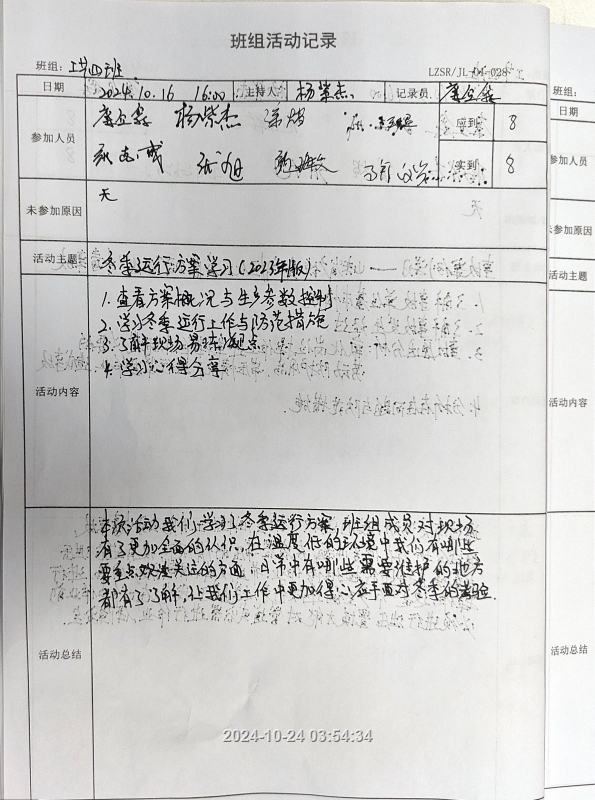 班组活动记录
班组：上艺四班
LZSR/JL-04-028
日期 2024.10.16 16:00 主持人 杨紫杰 记录员
参加人员 杨紫杰 应到 8
张旭 实到 8
未参加原因 无
活动主题 冬季运行方案学习(2023年版)
活动内容
1.查看方案概况与生产参数控制
2.学习冬季运行工作与防范措施
3.了解现场易凍凝点
4.学习心得分享
活动总结
本次活动我们学习了冬季运行方案,班组成员对现场
有了更加全面的认识,在温度低的环境中我们有哪些
要重点关注的方面,日常中有哪些需要维护的地方
都有了了解,让我们工作中更加得心应手面对冬季的考验.
2024-10-24 03:54:34
班组：
日期
参加人员
未参加原因
活动主题
活动内容
活动总结